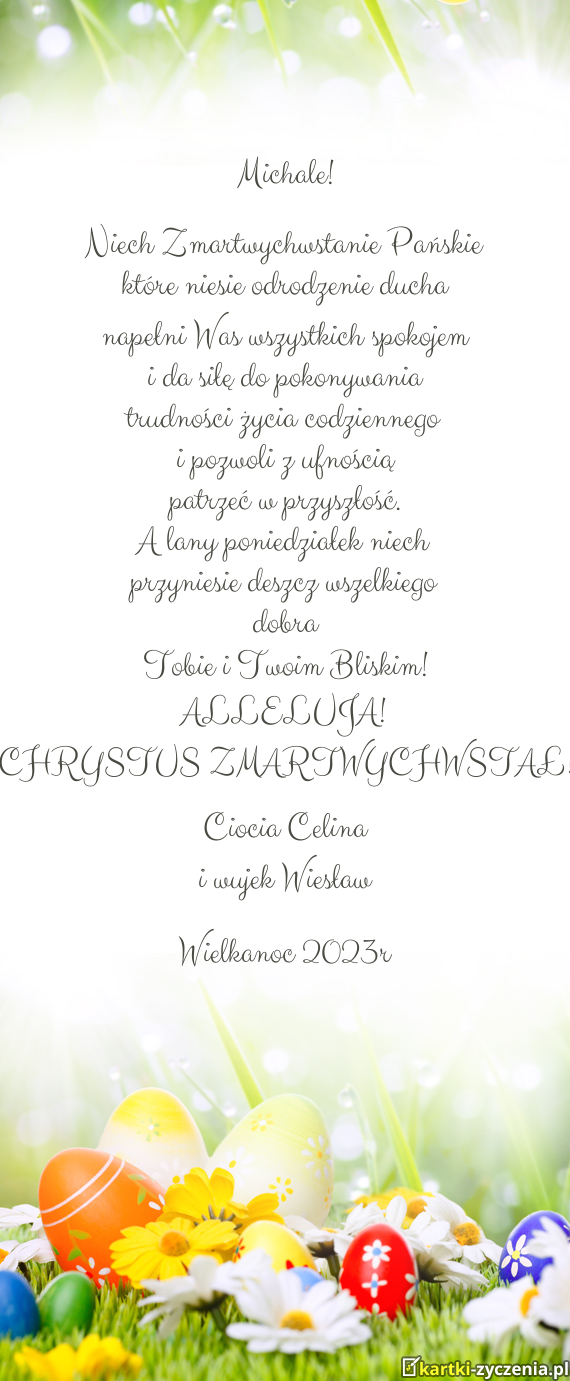 Michale!
Niech Zmartwychwstanie Pańskie
które niesie odrodzenie ducha
napełni Was wszystkich spokojem
i da siłę do pokonywania
trudności życia codziennego
i pozwoli z ufnością
patrzeć w przyszłość.
A lany poniedziałek niech
przyniesie deszcz wszelkiego
dobra
Tobie i Twoim Bliskim!
ALLELUJA!
CHRYSTUS ZMARTWYCHWSTAŁ!
Ciocia Celina
i wujek Wiesław
Wielkanoc 2023r
kartki-zyczenia.pl